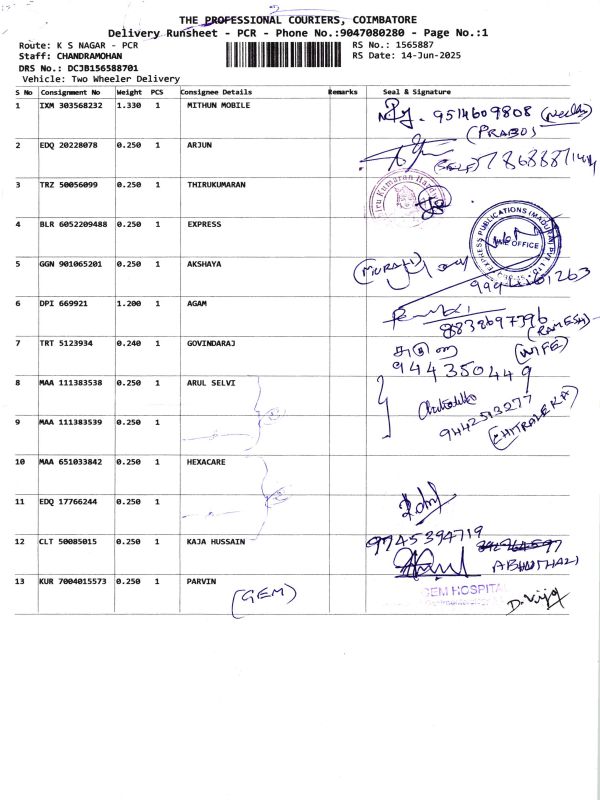 THE PROFESSIONAL COURIERS, COIMBATORE
Delivery Runsheet - PCR - Phone No.:9047080280 - Page No.:1
Route: K S NAGAR - PCR RS No.: 1565887
Staff: CHANDRAMOHAN RS Date: 14-Jun-2025
DRS No.: DCJB156588701
Vehicle: Two Wheeler Delivery
S No Consignment No Weight PCS Consignee Details Remarks Seal & Signature
1 IXM 303568232 1.330 1 MITHUN MOBILE 9514609808
(PRABU)
2 EDQ 20228078 0.250 1 ARJUN (SELF)
3 TRZ 50056099 0.250 1 THIRUKUMARAN
4 BLR 6052209488 0.250 1 EXPRESS EXPRESS PUBLICATIONS (MADURAI) PVT. LTD. OFFICE
5 GGN 901065201 0.250 1 AKSHAYA (MURALI)
6 DPI 669921 1.200 1 AGAM
8838697796 (RAMESH)
7 TRT 5123934 0.240 1 GOVINDARAJ (WIFE)
9443504449
8 MAA 111383538 0.250 1 ARUL SELVI
9442513277
9 MAA 111383539 0.250 1 (CHITRALEKA)
10 MAA 651033842 0.250 1 HEXACARE
11 EDQ 17766244 0.250 1
12 CLT 50085015 0.250 1 KAJA HUSSAIN 9745394719
13 KUR 7004015573 0.250 1 PARVIN
(GEM) GEM HOSPITAL